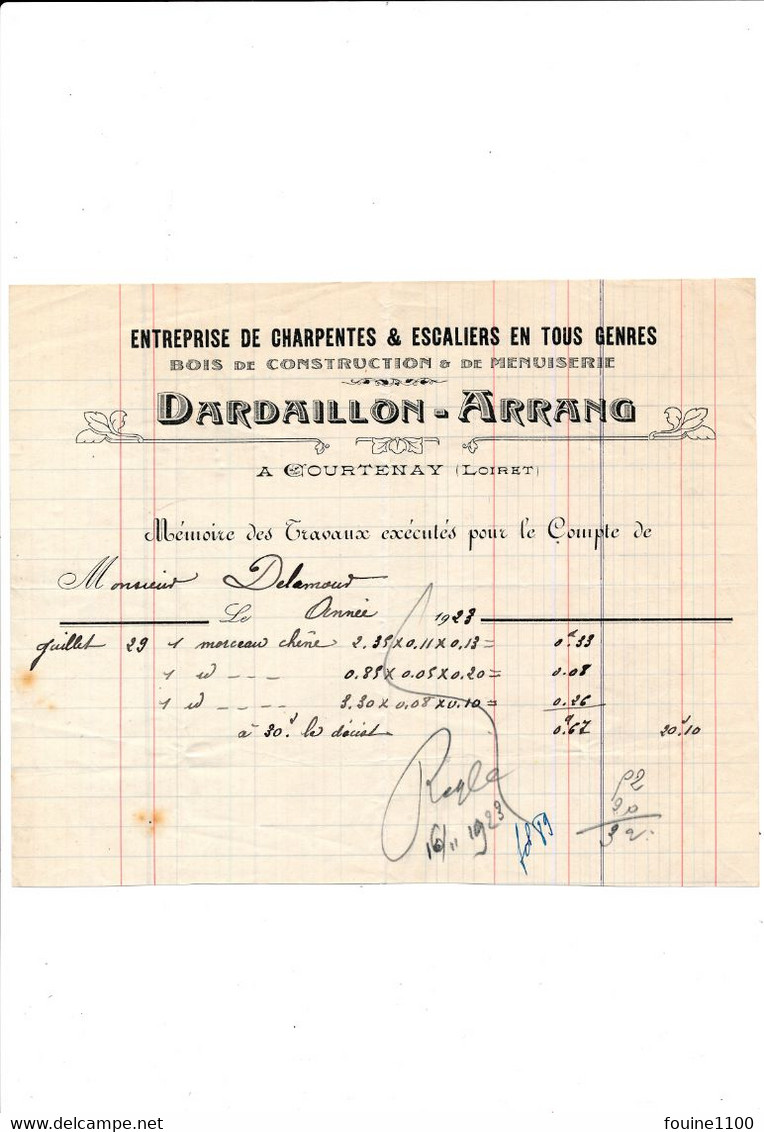 ENTREPRISE DE CHARPENTES & ESCALIERS EN TOUS GENRES
BOIS DE CONSTRUCTION & DE MENUISERIE
DARDAILLON - ARRANG
A COURTENAY (LOIRET)
Mémoire des Travaux exécutés pour le Compte de
Monsieur Delamour
Le Année 1923
Juillet 29 1 morceau chêne 2.35 x 0.11 x 0.13 = 0.33
1 id - - - 0.85 x 0.05 x 0.20 = 0.08
1 id - - - - 3.30 x 0.08 x 0.10 = 0.26
à 30f le décist. 0.67 20f10
Réglé
16/11 1923
fol 89
delcampe.net
fouine1100